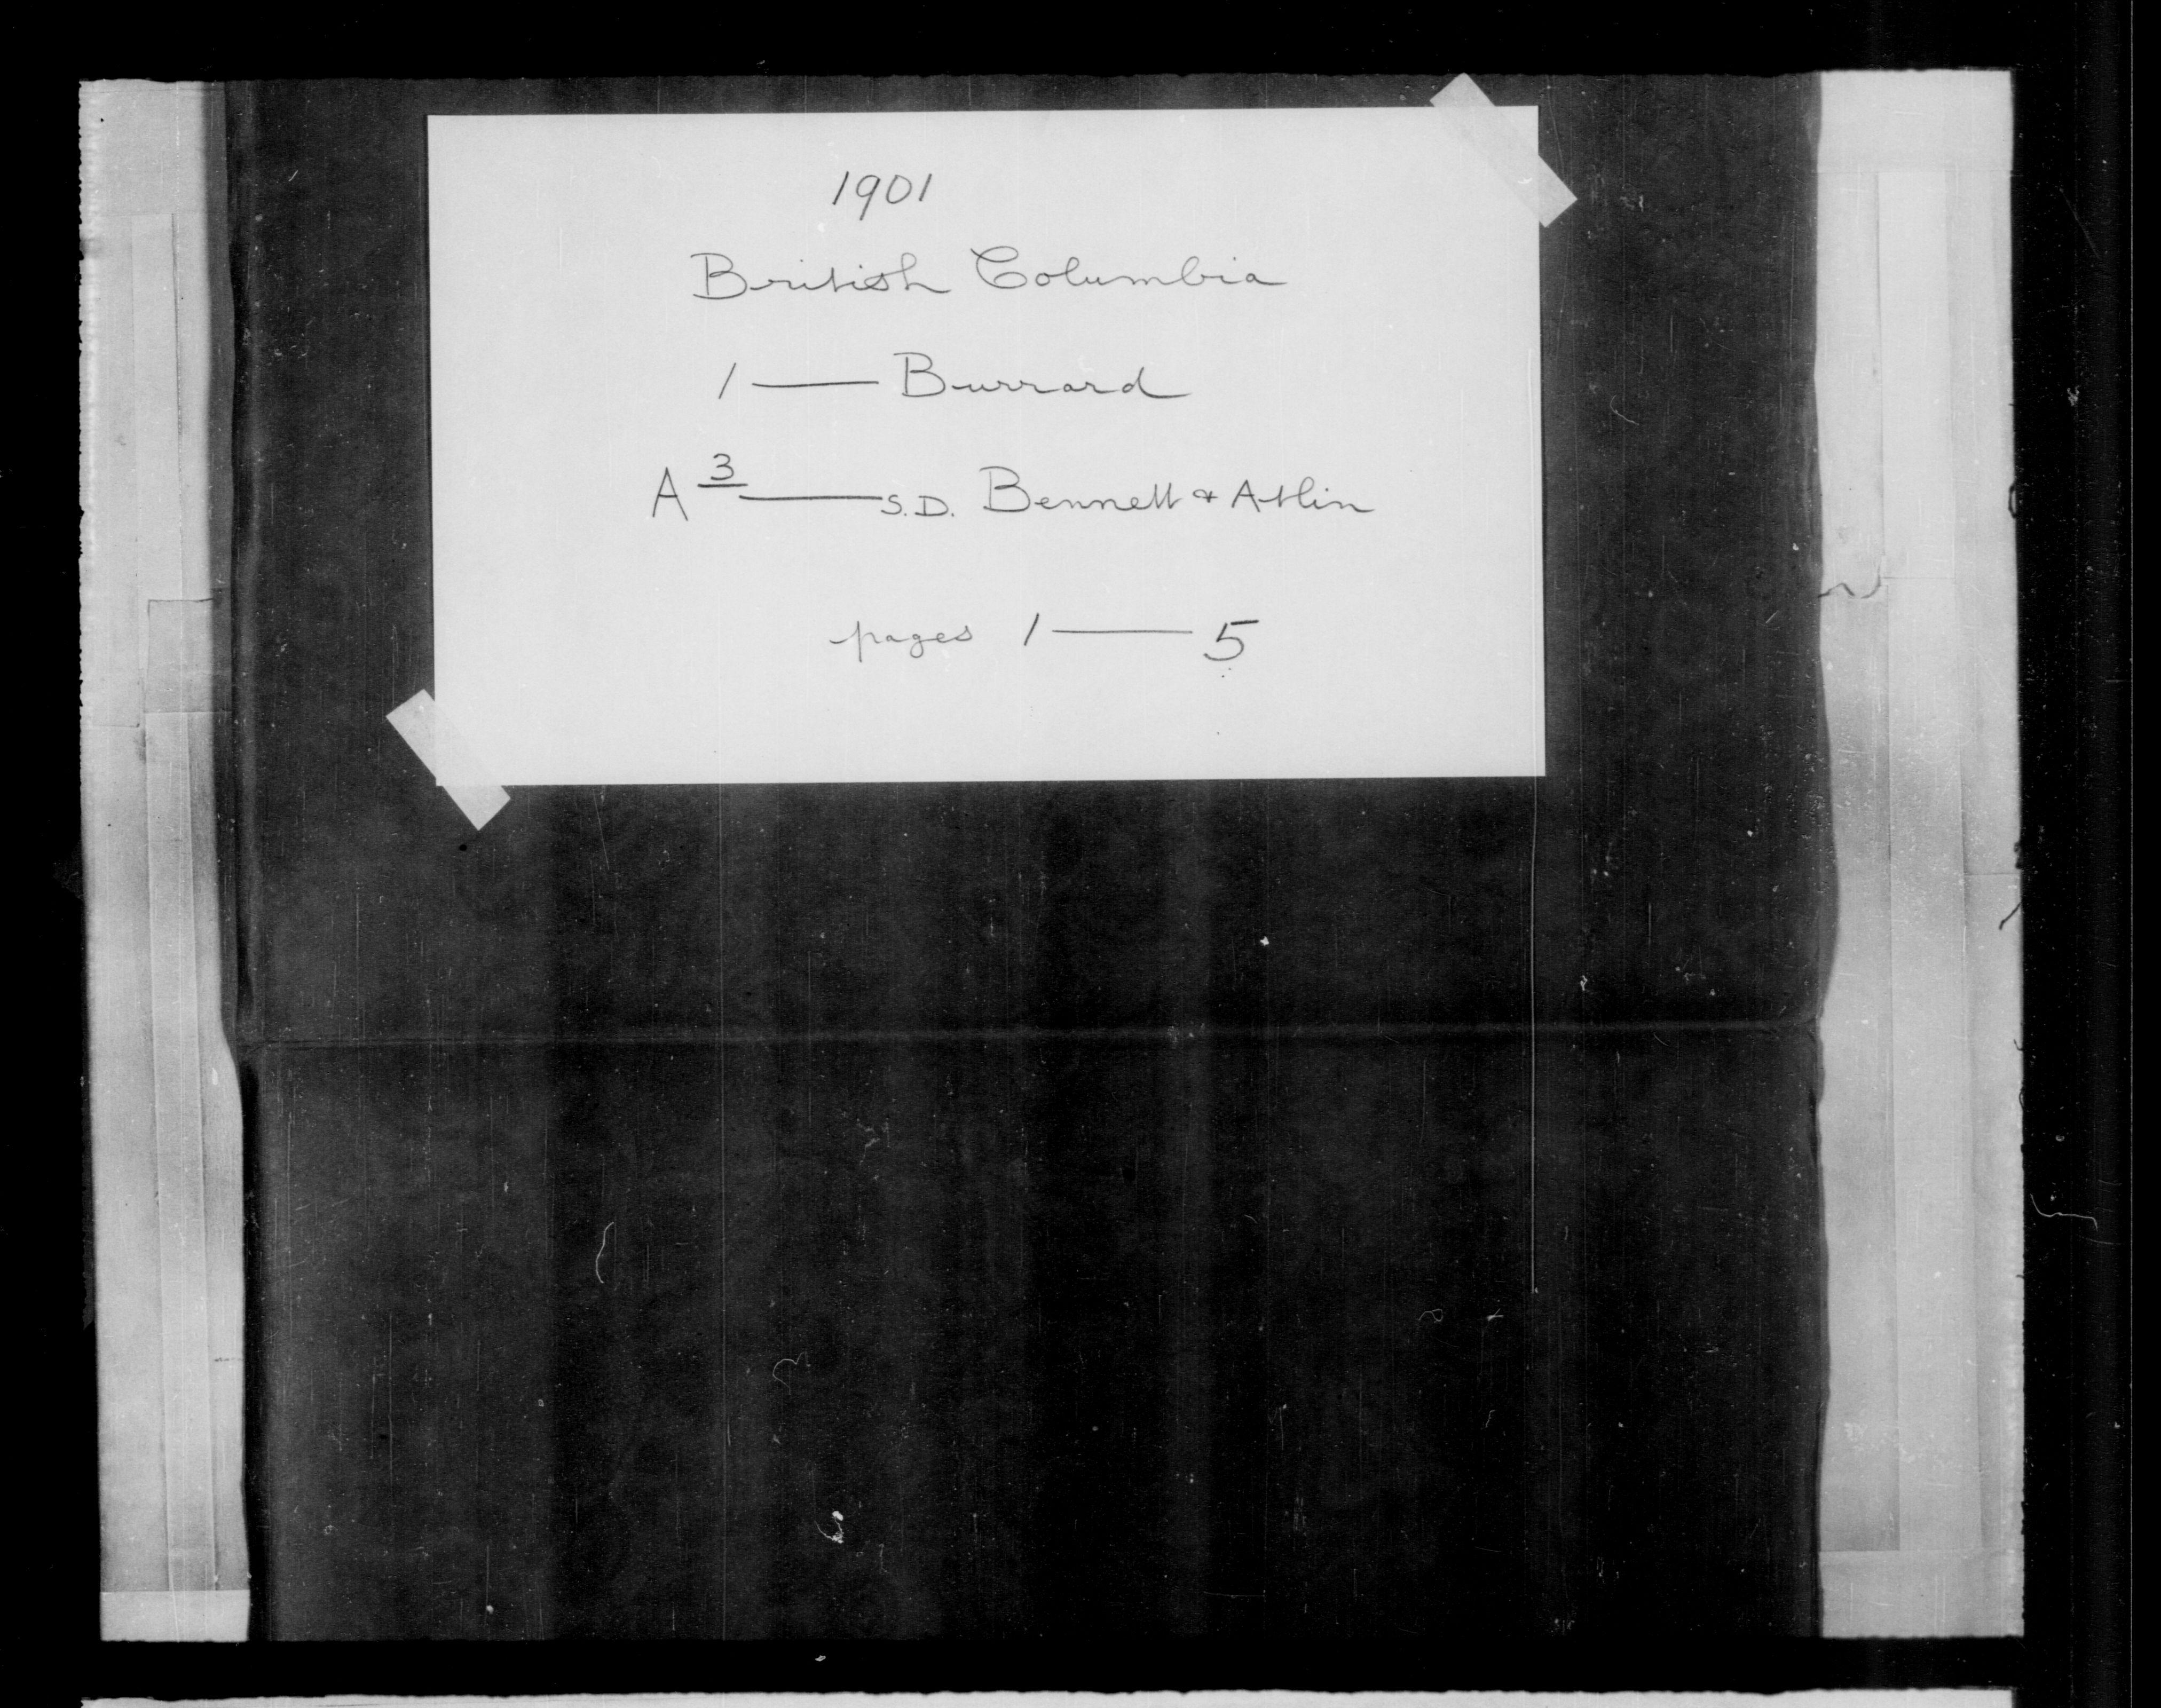 1901
British Columbia
1 — Burrard
A 3 — S.D. Bennett & Atlin
pages 1 — 5